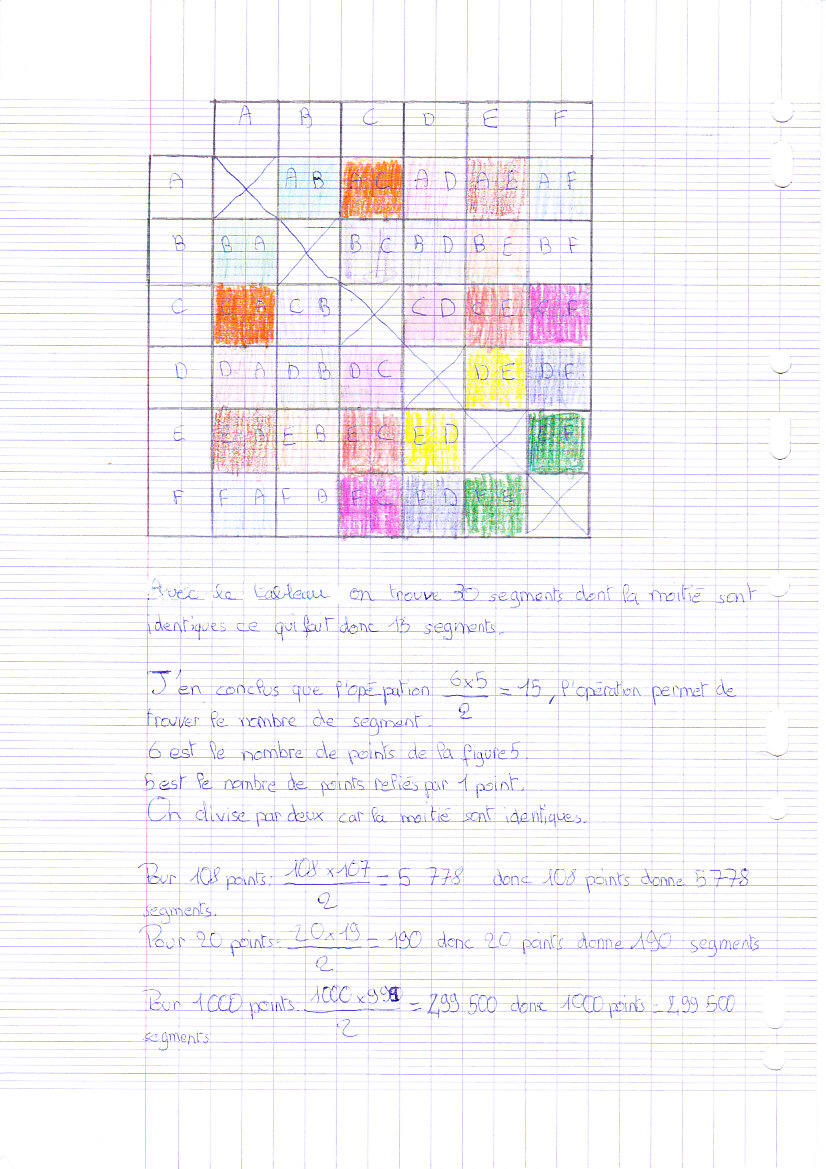 A B C D E F
A AB AC AD AE AF
B BA BC BD BE BF
C CA CB CD CE CF
D DA DB DC DE DF
E EA EB EC ED EF
F FA FB FC FD FE
Avec le tableau on trouve 30 segments dont la moitié sont
identiques ce qui fait donc 15 segments.
J'en conclus que l'opépation 6x5/2 = 15, l'opération permet de
trouver le nombre de segment.
6 est le nombre de points de la figure 5.
5 est le nombre de points reliés par 1 point.
On divise par deux car la moitié sont identiques.
Pour 108 points: 108 x 107/2 = 5 778 donc 108 points donne 5 778
segments.
Pour 20 points: 20 x 19/2 = 190 donc 20 points donne 190 segments
Pour 1000 points: 1000 x 999/2 = 499 500 donc 1000 points = 499 500
segments